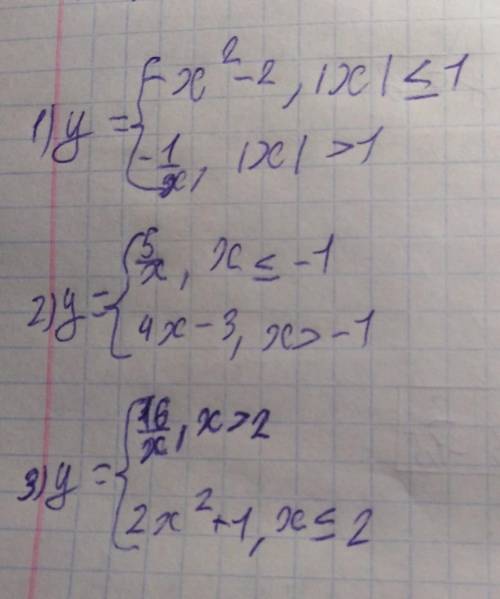 1) y = { -x² - 2, |x| ≤ 1
-1/x, |x| > 1
2) y = { 5/x, x ≤ -1
4x - 3, x > -1
3) y = { 16/x, x > 2
2x² + 1, x ≤ 2